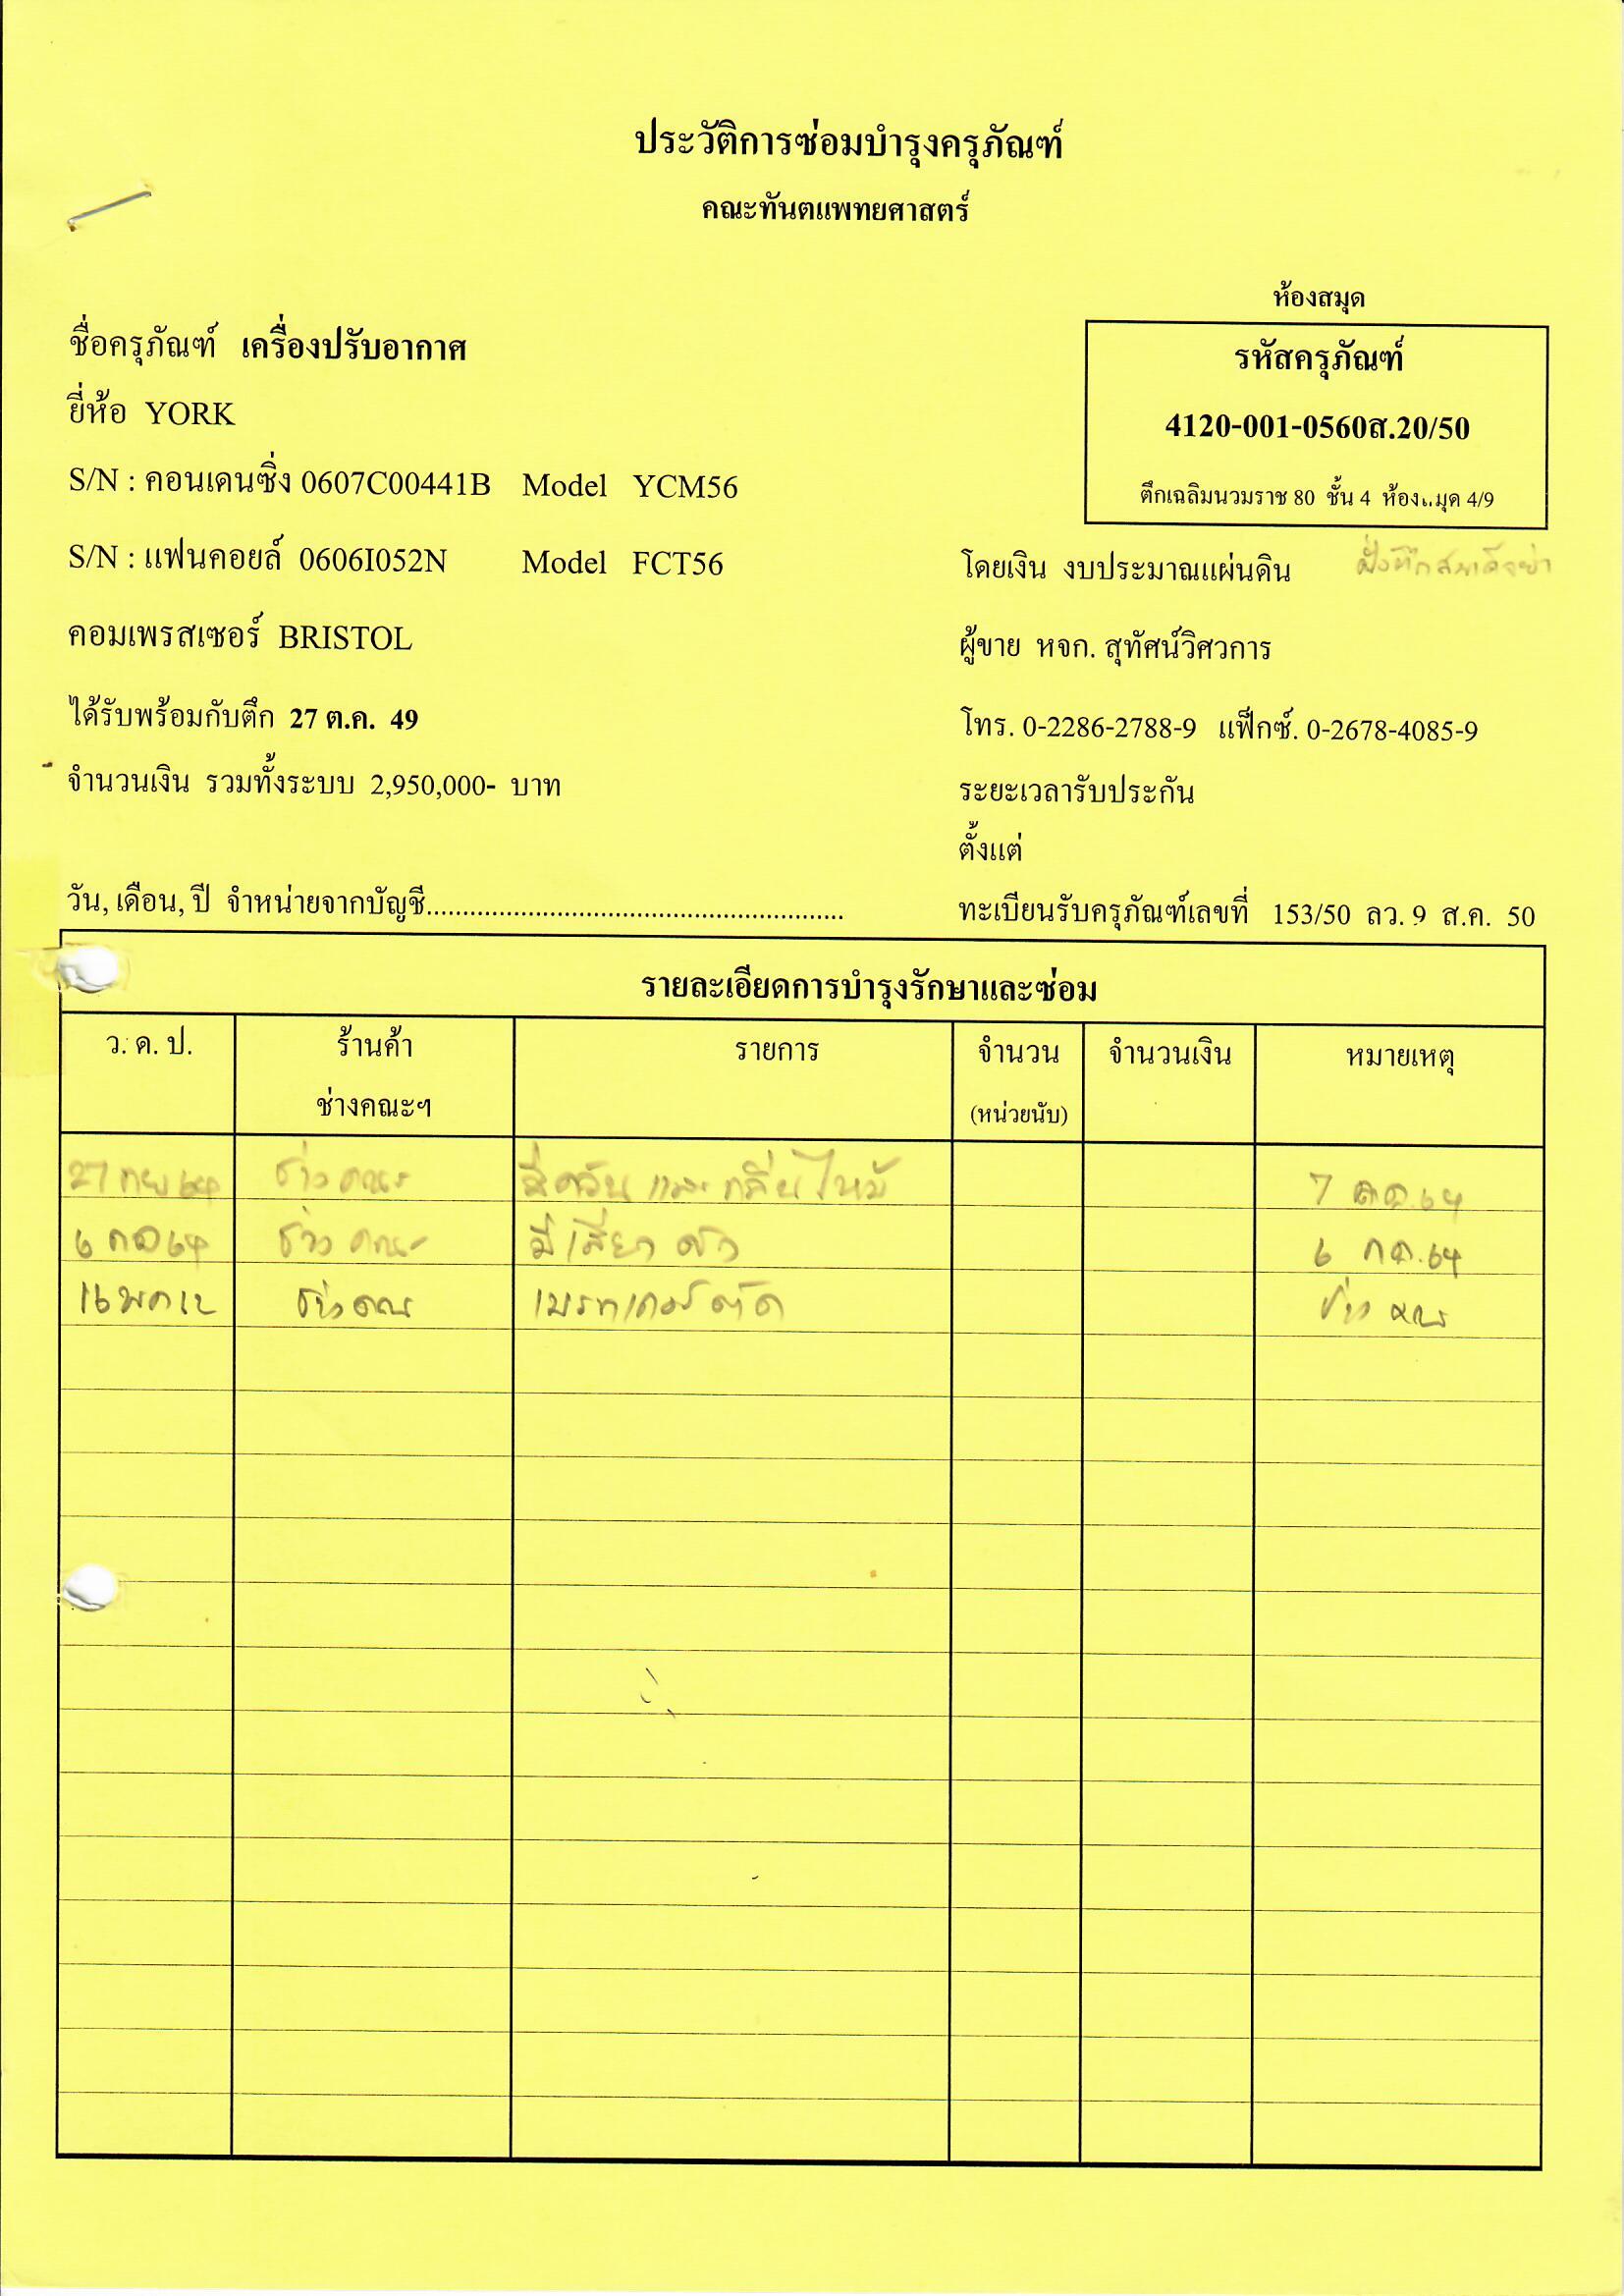 ประวัติการซ่อมบำรุงครุภัณฑ์
คณะทันตแพทยศาสตร์
ห้องสมุด
ชื่อครุภัณฑ์ เครื่องปรับอากาศ
รหัสครุภัณฑ์
ยี่ห้อ YORK
4120-001-0560ส.20/50
S/N : คอนเดนซิ่ง 0607C00441B Model YCM56
ตึกเฉลิมนวมราช 80 ชั้น 4 4/9
S/N : แฟนคอยล์ 0606I052N Model FCT56
โดยเงิน งบประมาณแผ่นดิน
คอมเพรสเซอร์ BRISTOL
ผู้ขาย หจก. สุทัศน์วิศวการ
ได้รับพร้อมกับตึก 27 ต.ค. 49
โทร. 0-2286-2788-9 แฟ็กซ์. 0-2678-4085-9
จำนวนเงิน รวมทั้งระบบ 2,950,000- บาท
ระยะเวลารับประกัน
ตั้งแต่
วัน, เดือน, ปี จำหน่ายจากบัญชี..........................................................
ทะเบียนรับครุภัณฑ์เลขที่ 153/50 ลว. 9 ส.ค. 50
รายละเอียดการบำรุงรักษาและซ่อม
ว. ด. ป. ร้านค้า รายการ จำนวน จำนวนเงิน หมายเหตุ
ช่างคณะฯ (หน่วยนับ)
27 กย 64 ช่างคณะ มีควัน และกลิ่นไหม้ 7 64
6 64 ช่างคณะ มีเสียงดัง 6 64
16 ช่างคณะ เบรกเกอร์ตัด ช่างคณะ